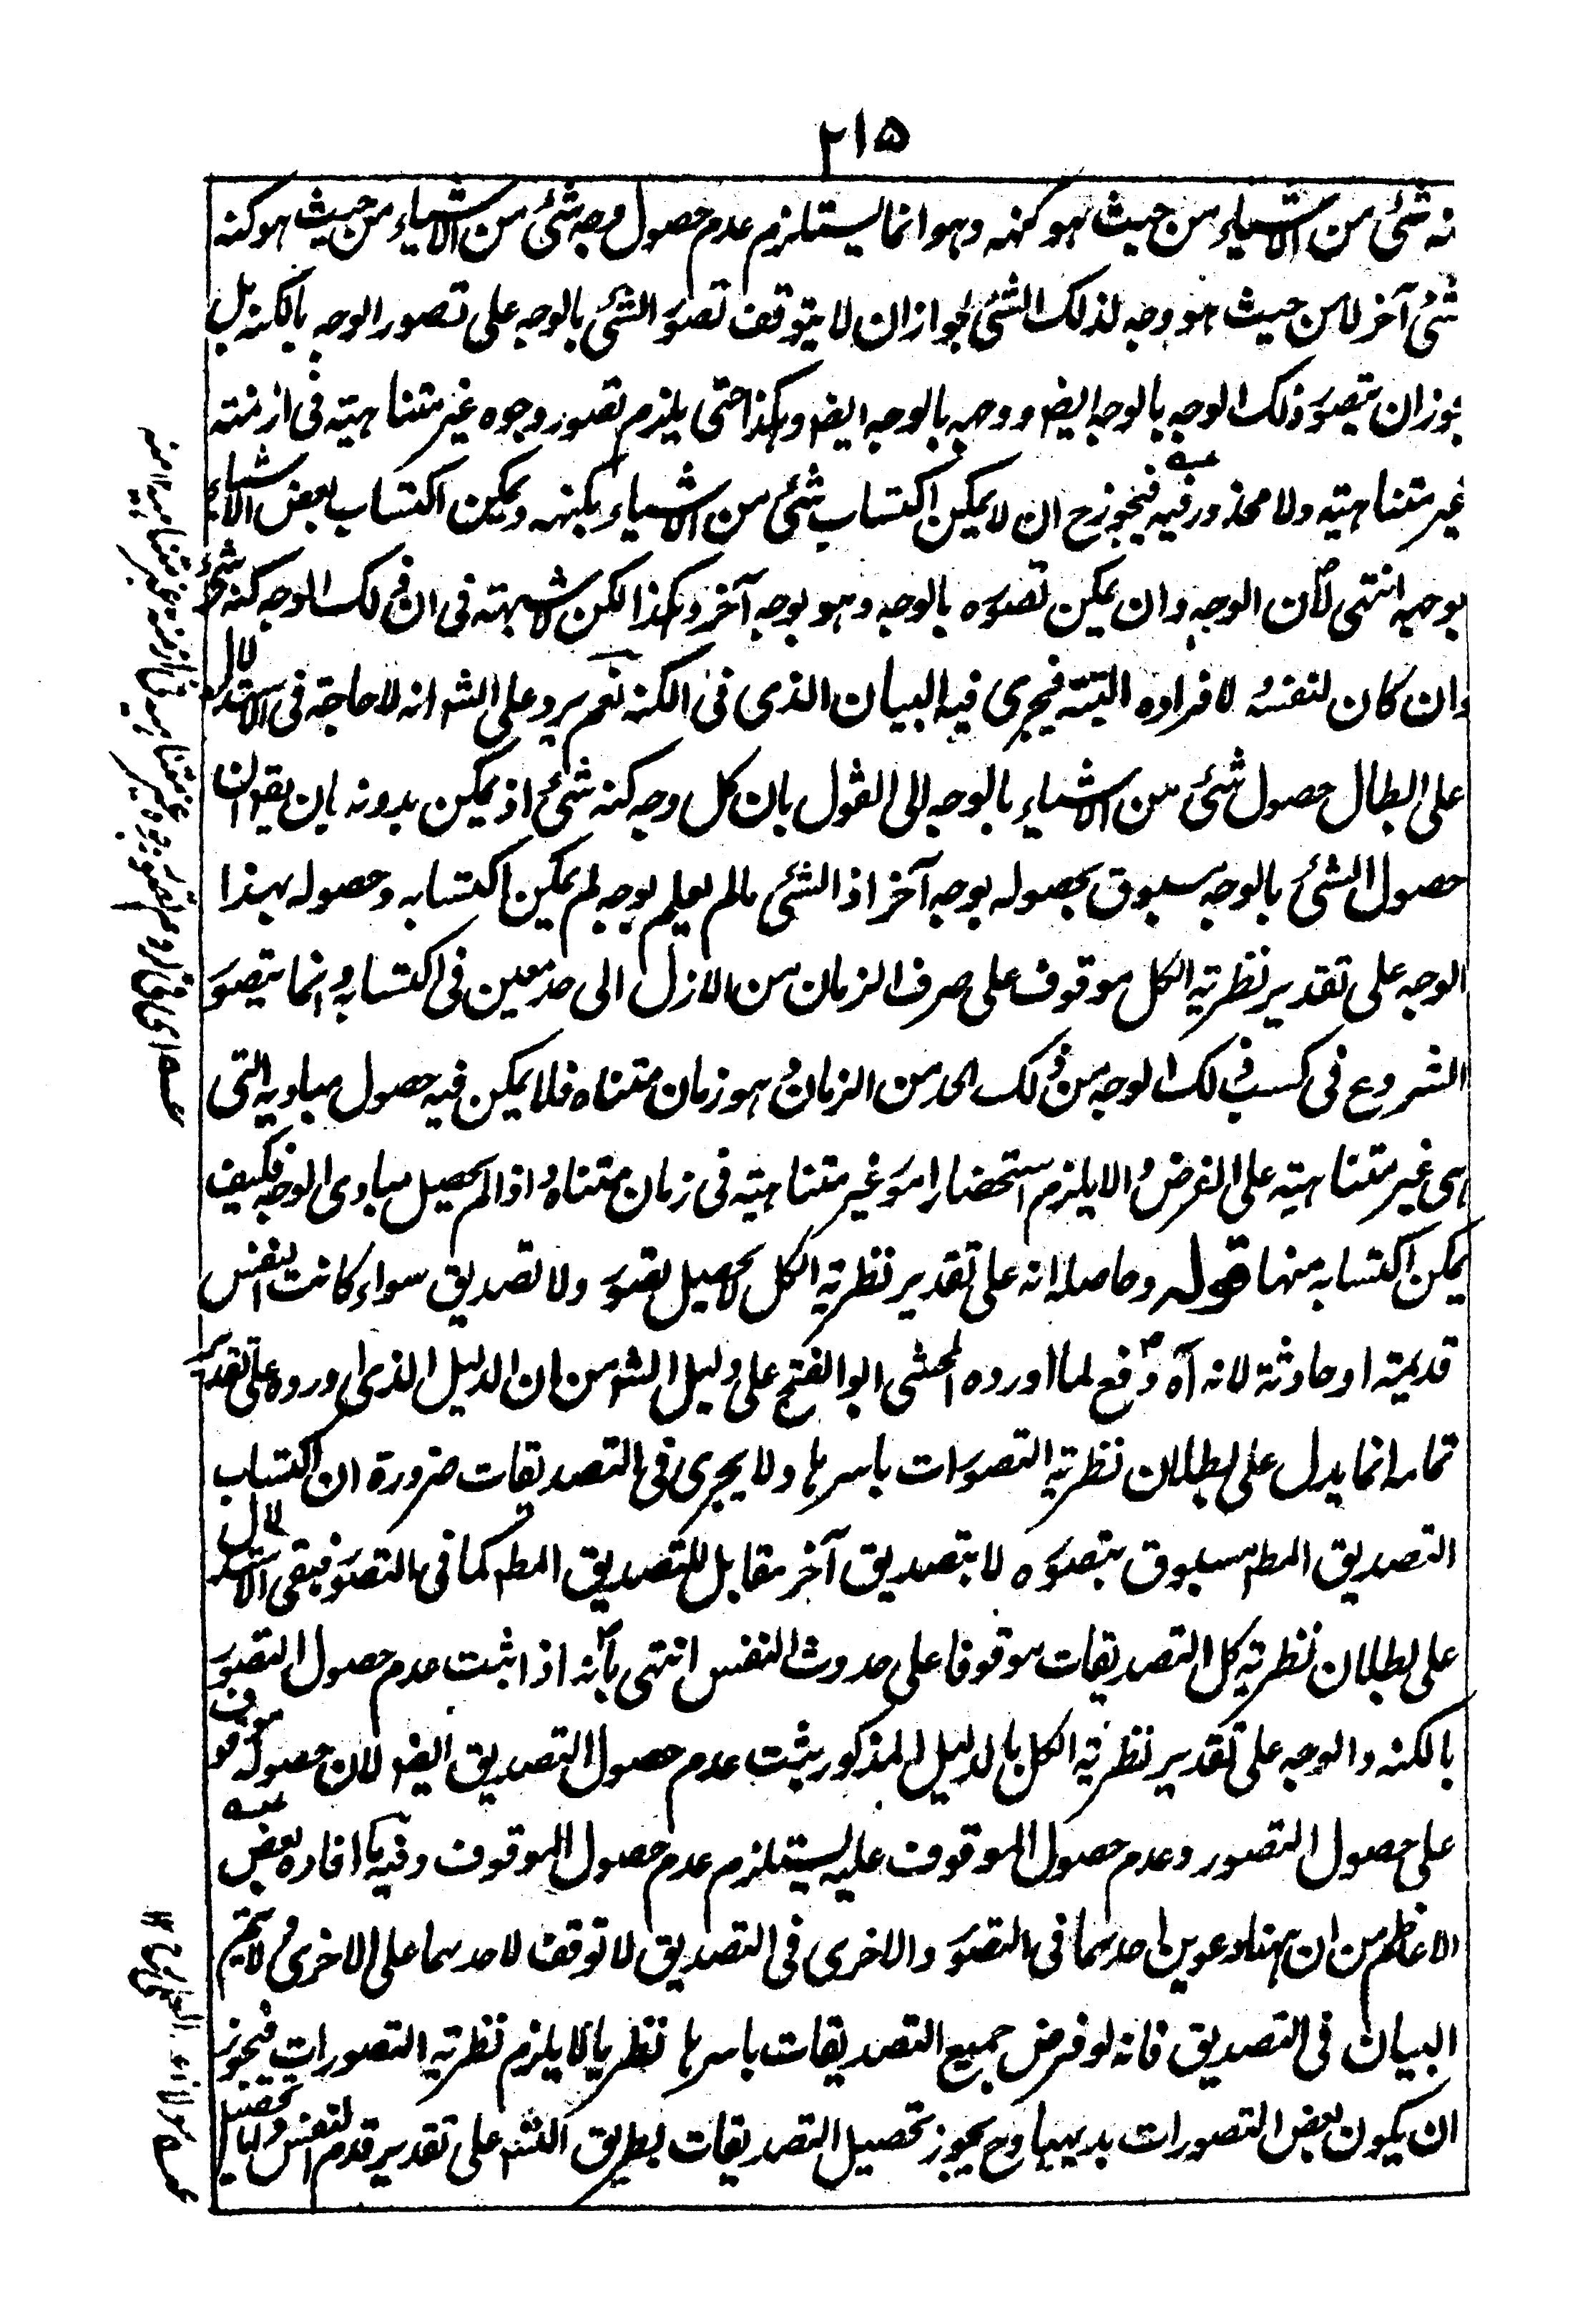 ٢١٥
نه شئ من الاشياء من حيث هو كنهه وهو انما يستلزم عدم حصول وجه شئ من الاشياء من حيث هو كنه
شئ آخر لا من حيث هو وجه لذلك الشئ لجواز ان لا يتوقف تصور الشئ بالوجه على تصور الوجه بالكنه بل
يجوز ان يتصور ذلك الوجه بالوجه ايضا ووجهه بالوجه ايضا وهكذا حتى يلزم تصور وجوه غير متناهية فى ازمنة
غير متناهية ولا محذور فيه فيجوز ح ان لا يمكن اكتساب شئ من الاشياء بكنهه ويمكن اكتساب بعض الاشياء
بوجهه انتهى لان الوجه وان يمكن تصوره بالوجه وهو بوجه آخر وهكذا لكن لا شبهة فى ان ذلك الوجه كنه شئ
وان كان لنفسه لافراده البتة فيجرى فيه البيان الذى فى الكنه نعم يرد على الشه انه لا حاجة فى الاستدلال
على ابطال حصول شئ من الاشياء بالوجه الى القول بان كل وجه كنه شئ اذ يمكن بدونه بان يقول ان
حصول الشئ بالوجه مسبوق بحصوله بوجه آخر اذ الشئ ما لم يعلم بوجه لم يمكن اكتسابه وحصوله بهذا
الوجه على تقدير نظرية الكل موقوف على صرف الزمان من الازل الى حد معين فى اكتسابه وانما يتصور
الشروع فى كسب ذلك الوجه من ذلك الحد من الزمان وهو زمان متناه فلا يمكن فيه حصول مباديه التى
هى غير متناهية على الفرض والا يلزم استحضار امور غير متناهية فى زمان متناه واذا لم يحصل مبادى الوجه فكيف
يمكن اكتسابه منها قوله وحاصله انه على تقدير نظرية الكل لا يحصل تصور ولا تصديق سواء كانت النفس
قديمة او حادثة لانه آه دفع لما اورده المحشى ابو الفتح على دليل الشه من ان الدليل الذى اورده على تقدير
تمامه انما يدل على بطلان نظرية التصورات باسرها ولا يجرى فى التصديقات ضرورة ان اكتساب
التصديق المط مسبوق بتصوره لا بتصديق آخر مقابل للتصديق المط كما فى التصور فبقى الاستدلال
على بطلان نظرية كل التصديقات موقوفا على حدوث النفس انتهى بانه اذا ثبت عدم حصول التصور
بالكنه والوجه على تقدير نظرية الكل بالدليل المذكور يثبت عدم حصول التصديق ايضا لان حصوله موقوف
على حصول التصور وعدم حصول الموقوف عليه يستلزم عدم حصول الموقوف وفيه ما افاده بعض
الاعاظم من ان ههنا دعويين احدهما فى التصور والاخرى فى التصديق لا توقف لاحدهما على الاخرى ولا يتم
البيان فى التصديق فانه لو فرض جميع التصديقات باسرها نظريا لا يلزم نظرية التصورات فيجوز
ان يكون بعض التصورات بديهيا وح يجوز تحصيل التصديقات بطريق الشه على تقدير قدم النفس